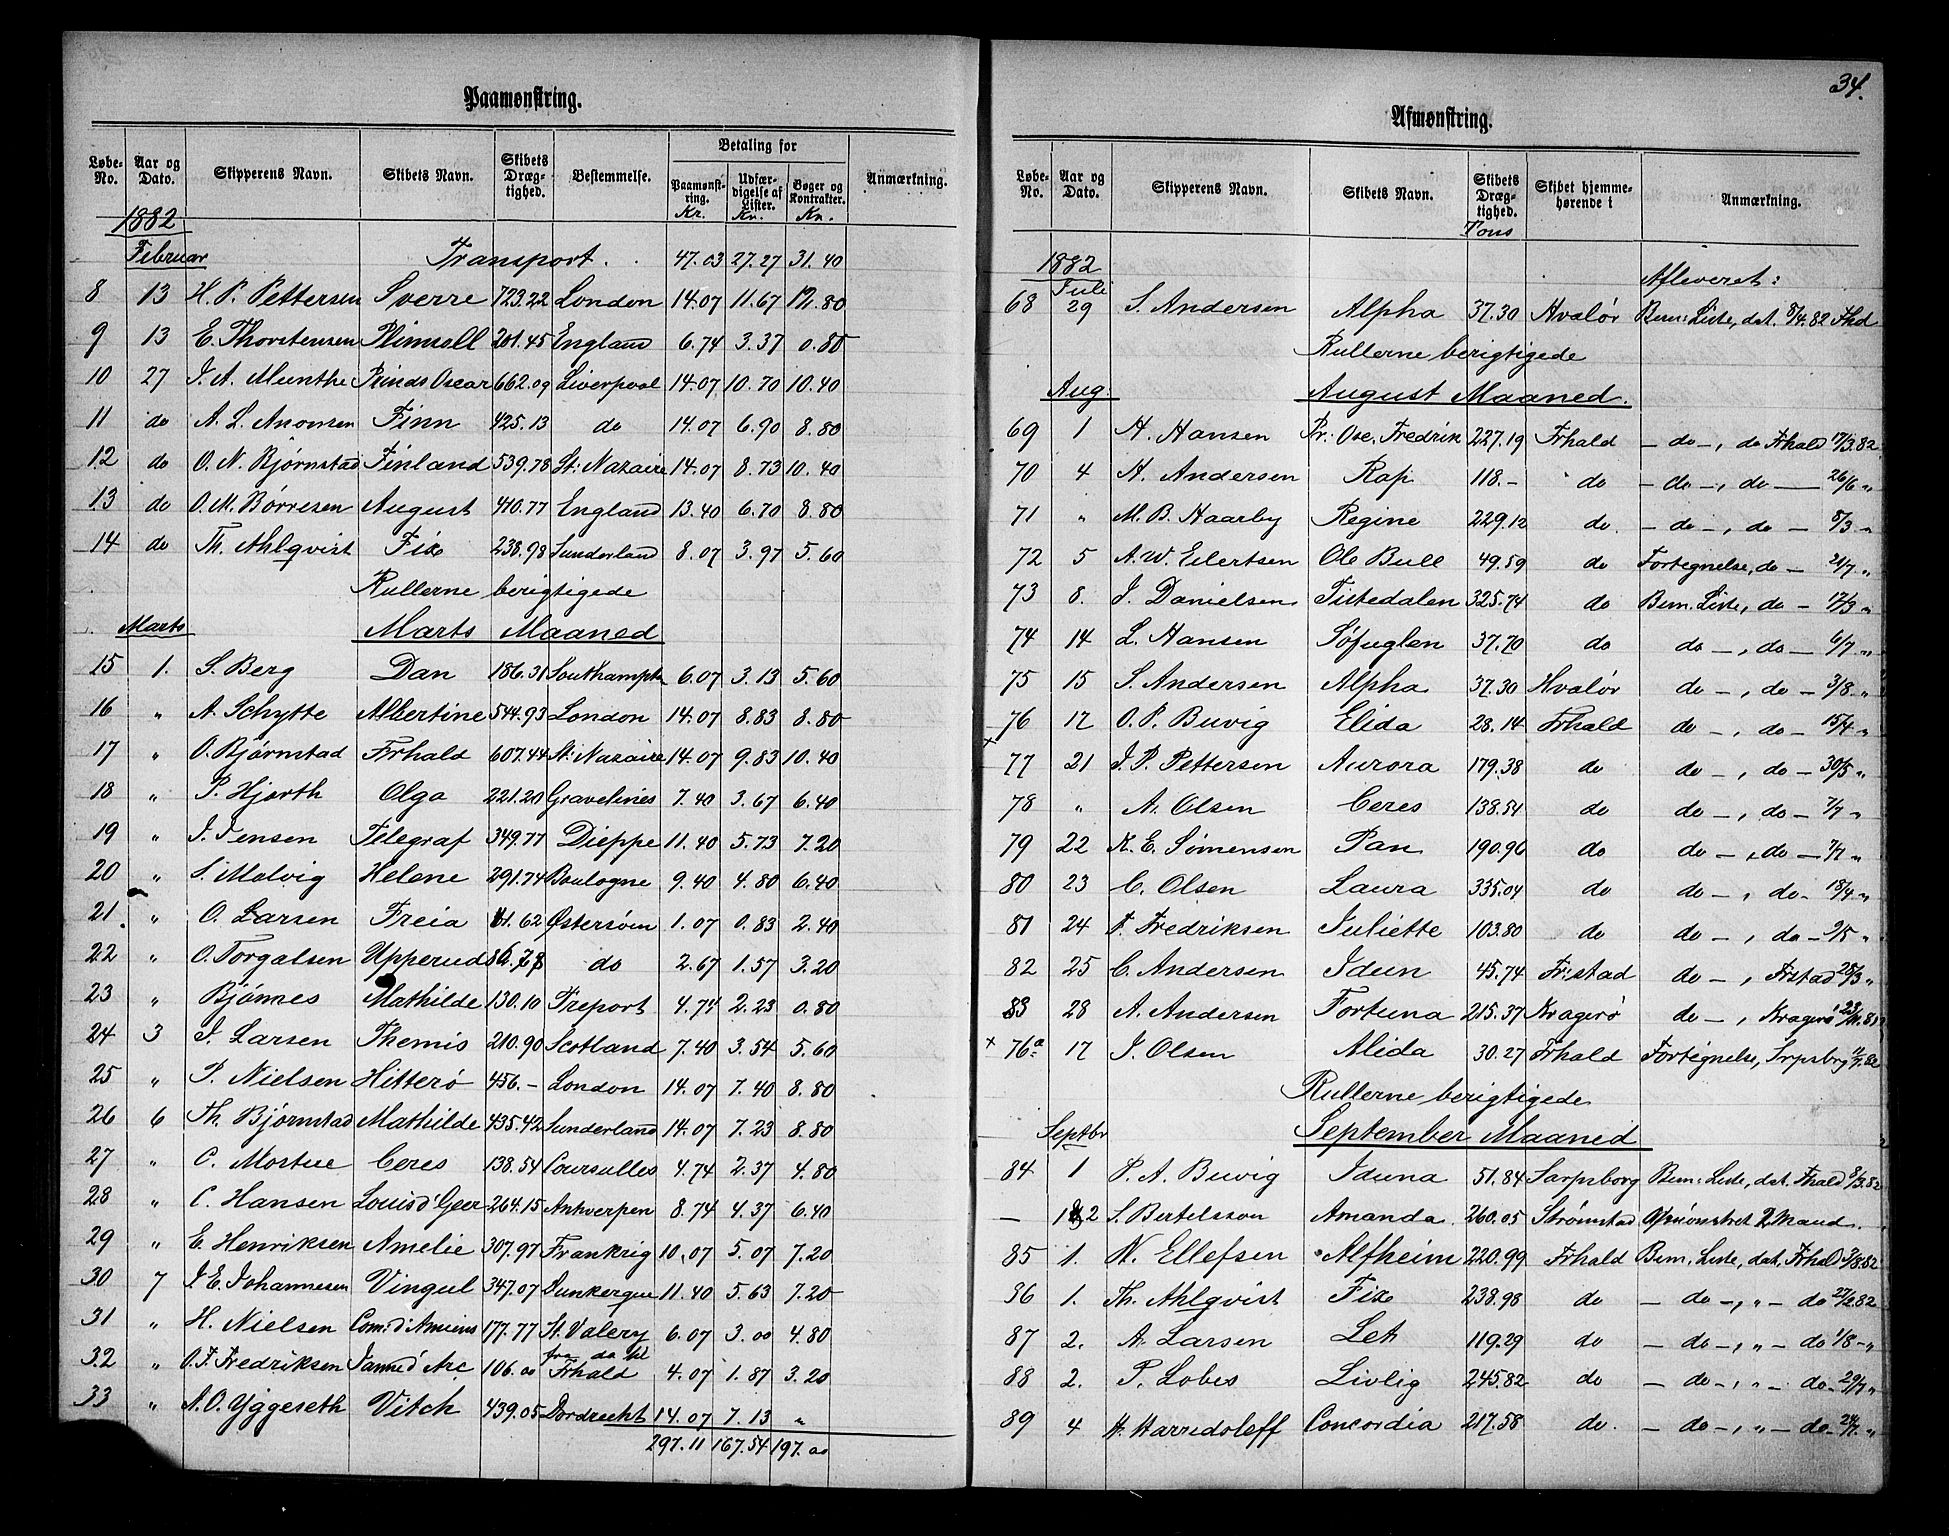 Paamønstring.
Løbe-No. Aar og Dato. Skipperens Navn. Skibets Navn. Skibets Dræg-tighed. Bestemmelse. Betaling for Paamønst-ring. Kr. Udfær-digelse af Lister. Kr. Bøger og Kontrakter. Kr. Anmærkning.
1882
Februar Transport . . 47.03 27.27 31.40
8 13 H. P. Pettersen Sverre 723.22 London 14.07 11.67 12.80
9 13 E. Thorstensen Plimsoll 201.45 England 6.74 3.37 0.80
10 27 J. A. Munthe Prinds Oscar 662.09 Liverpool 14.07 10.70 10.40
11 do A. L. Anonsen Finn 425.13 do 14.07 6.90 8.80
12 do O. N. Bjørnstad Finland 539.78 St. Nazaire 14.07 8.73 10.40
13 do O. M. Børresen August 410.77 England 13.40 6.70 8.80
14 do Th. Ahlqvist Fix 238.98 Sunderland 8.07 3.97 5.60
Rullerne berigtigede
Marts Marts Maaned
15 1. S. Berg Dan 186.31 Southampton 6.07 3.13 5.60
16 " A. Schytte Albertine 544.93 London 14.07 8.83 8.80
17 " O. Bjørnstad Frhald 607.44 St. Nazaire 14.07 9.83 10.40
18 " P. Hjorth Olga 221.20 Gravelines 7.40 3.67 6.40
19 " J. Jensen Telegraf 349.77 Dieppe 11.40 5.73 7.20
20 " S. Molvig Helene 291.74 Boulogne 9.40 4.80 6.40
21. " O. Larsen Freia 61.62 Østersøen 1.07 0.83 2.40
22 " O. Torgalsen Upperud 86.78 do 2.67 1.57 3.20
23 " Bjørnes Mathilde 130.10 Treport 4.74 2.23 0.80
24 3 J. Larsen Themis 210.90 Scotland 7.40 3.54 5.60
25 " P. Nielsen Hitterø 456.— London 14.07 7.40 8.80
26 6 Th. Bjørnstad Mathilde 435.42 Sunderland 14.07 7.23 8.80
27 " C. Mostue Ceres 138.54 Coursulles 4.74 2.37 4.80
28 " C. Hansen Louis d'Geer 264.15 Antverpen 8.74 4.37 6.40
29 " E. Henriksen Amelie 307.97 Frankrig 10.07 5.07 7.20
30 7 J. E. Johannesen Vingul 347.07 Dunkerque 11.40 5.63 7.20
31 " H. Nielsen Com. d'Amiens 177.77 St. Valery 6.07 3.00 4.80
32 " O. F. Fredriksen Janne d'Arc 106.00 fra do til Frhald 4.07 1.87 3.20
33 " A. O. Yggeseth Vitch 439.05 Dordrecht 14.07 7.13 "
297.11 167.54 197.00
34.
Afmønstring.
Løbe-No. Aar og Dato. Skipperens Navn. Skibets Navn. Skibets Dræg-tighed. Tons Skibet hjemme-hørende i Anmærkning.
1882 Afleveret:
Juli
68 29 S. Andersen Alpha 37.30 Hvalør Bem: Liste, dat. 8/4.82 Fhd
Rullerne berigtigede
Aug. August Maaned.
69 1 H. Hansen Pr: Osc. Fredrik 227.19 Frhald — do —, do Frhald 17/3.82
70 4 H. Andersen Rap 118.— do — do —, do — 26/6 "
71 " M. B. Haarby Regine 229.12 do — do —, do — 8/3 "
72 5 A. W. Eilertsen Ole Bull 49.59 do Fortegnelse, do — 21/7 "
73 8. J. Danielsen Tistedalen 325.74 do Bem. Liste, do — 17/3 "
74 14 L. Hansen Søfuglen 37.70 do do —, do — 6/7 "
75 15 S. Andersen Alpha 37.30 Hvalør do —, do — 3/8 "
76 17 O. P. Buvig Elida 28.14 Frhald do —, do — 15/4 "
× 77 21 J. P. Pettersen Aurora 179.38 do do —, do — 30/5 "
78 " A. Olsen Ceres 138.54 do do —, do — 7/7 "
79 22 K. E. Simensen Pan 190.96 do do —, do — 7/7 "
80 23 C. Olsen Laura 335.04 do do —, do — 18/4 "
81 24 F. Fredriksen Juliette 103.80 do do —, do — 9/5 "
82 25 C. Andersen Idun 45.74 Fr:stad do —, Frstad 25/3 "
83 28 A. Andersen Fortuna 215.37 Kragerø do —, Kragerø 23/11.81
× 76a 17 J. Olsen Alida 30.27 Frhald Fortegnelse, Srpsbrg 11/7.82
Rullerne berigtigede
Septbr September Maaned
84 1 P. A. Buvig Iduna 51.84 Sarpsborg Bem: Liste, dat. Fhald 8/3.82
— 2 S. Bertelsson Amanda 260.05 Strømstad Afmønstret 2 Mand.
85 1. N. Ellefsen Alfheim 220.99 Frhald Bem. Liste, dat. Frhald 3/8.82
86 1. Th. Ahlqvist Fix 238.98 do — do —, " — do 27/2.82
87 2. A. Larsen Leh 119.29 do — do —, " — do 1/8 — "
88 2. P. Lobes Livlig 245.82 do — do —, " — do — 29/7 "
89 4 H. Harridsleff Concordia 217.58 do. — do —, " — do — 24/7 "